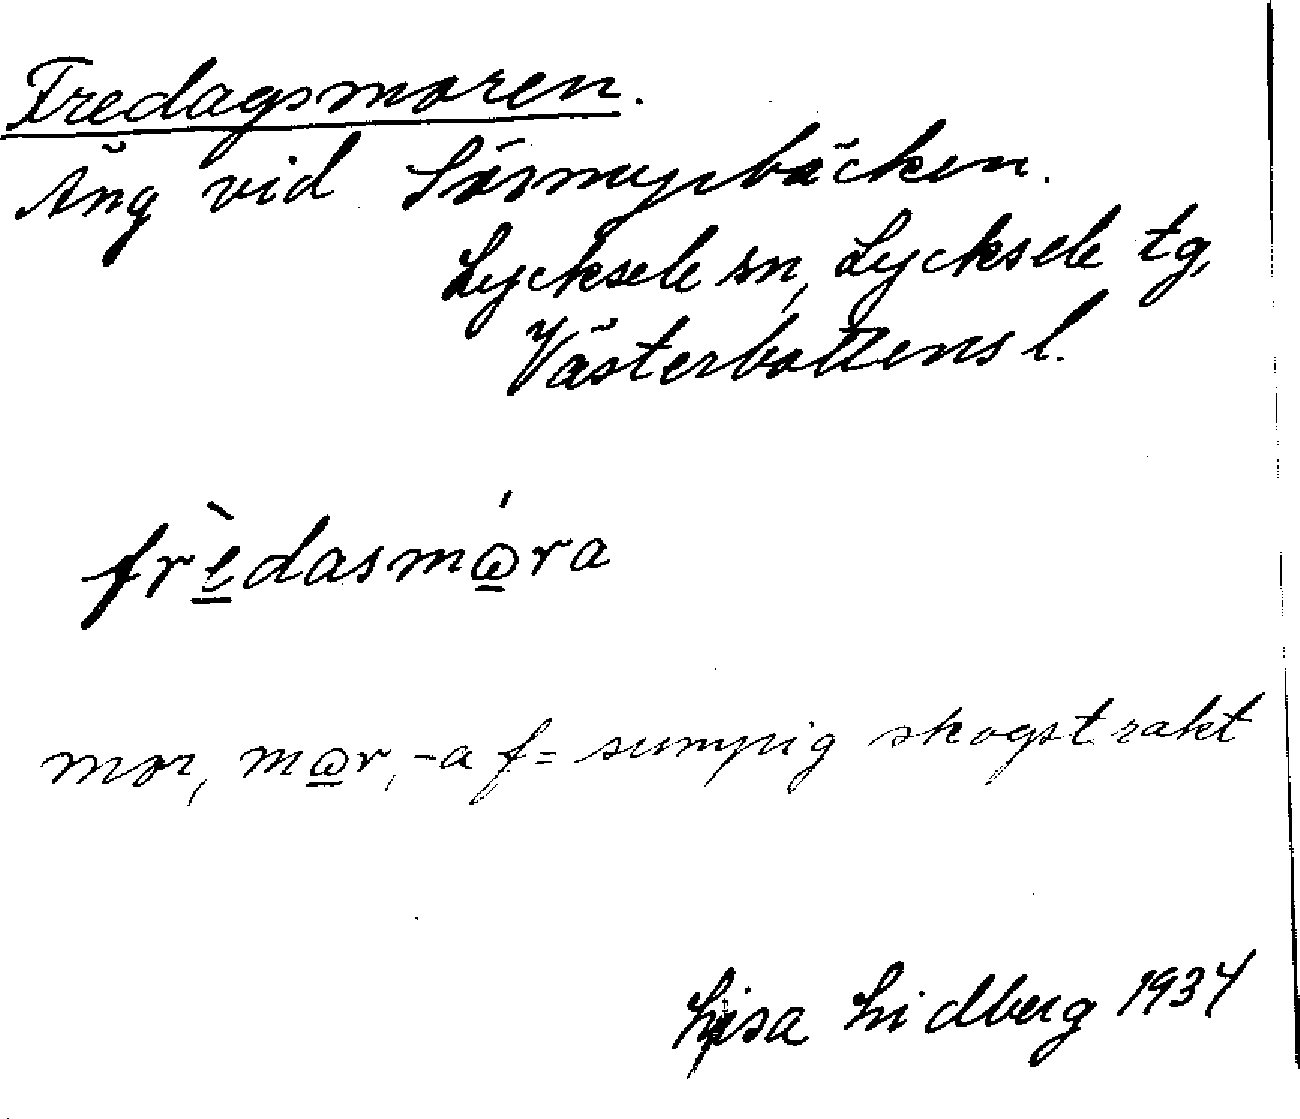 Fredagsmoren.
Äng vid Sörmyrbäcken.
Lycksele sn, Lycksele tg,
Västerbottens l.
frèdasmώ̲ra
mor, mω̲r, -a f= sumpig skogstrakt
Lisa Lidberg 1934